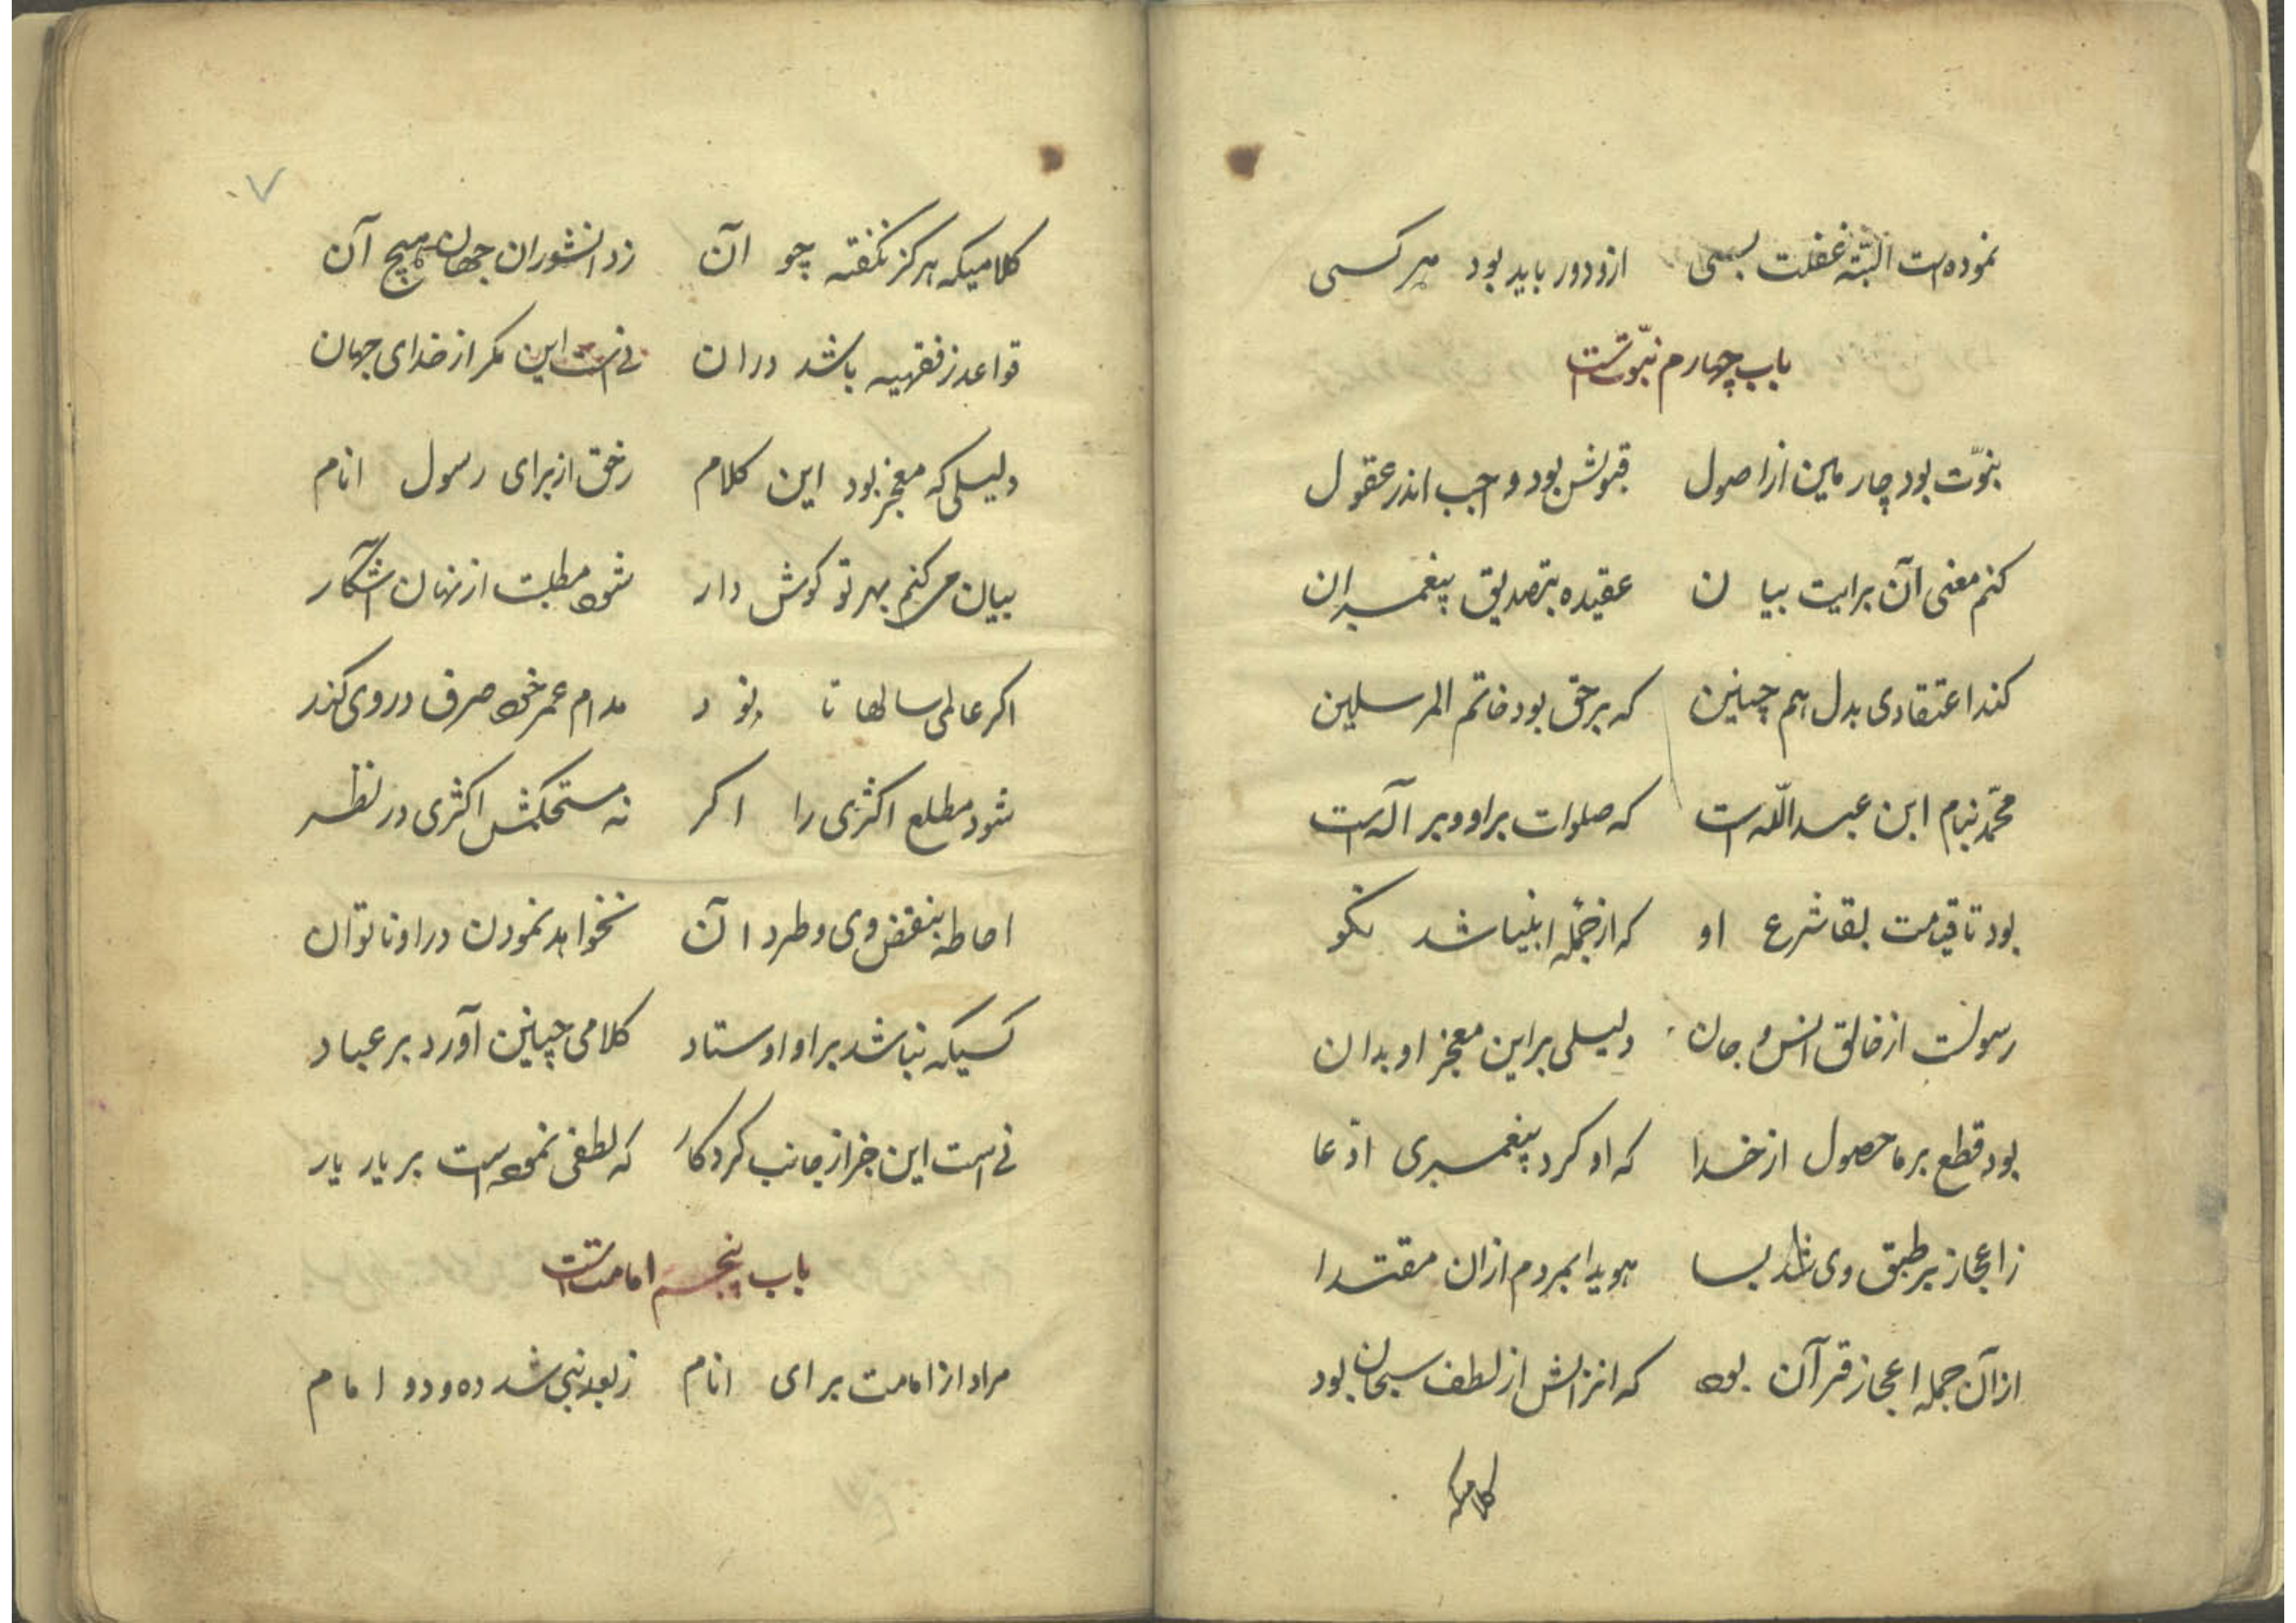 نموده است البتّه غفلت بسی ازو دور باید بود هر کسی
باب چهارم نبوّتست
نبوّت بود چارمین از اصول قبولش بود واجب اندر عقول
کنم معنی آن برایت بیان عقیده بتصدیق پیغمبران
کند اعتقادی بدل هم چنین که برحق بود خاتم المرسلین
محمّد بنام ابن عبداللّه است که صلوات بر او و بر آله است
بود تا قیامت بقا شرع او که از جمله انبیا شد نکو
رسولست از خالق انس و جان دلیلی براین معجز او بدان
بود قطع بر ما حصول از خدا که او کرد پیغمبری ادّعا
ز اعجاز بر طبق وی شد بسا هویدا بمردم ازان مقتدا
ازآن جمله اعجاز قرآن بود که انزالش از لطف سبحان بود
کلامیکه
۷
کلامیکه هرکز نکفته چو آن ز دانشوران جهان هیچ آن
قواعد ز فقهیه باشد دران نی است این مکر از خدای جهان
دلیلی که معجز بود این کلام ز حق از برای رسول انام
بیان می کنم بهر تو کوش دار شود مطلبت از نهان اشکار
اکر عالمی سالها تا بود مدام عمر خود صرف در وی کند
شود مطلع اکثری را اکر نه مستحکمش اکثری در نظر
احاطه بنقض وی و طرد آن نخواهد نمودن در او ناتوان
کسیکه نباشد بر او اوستاد کلامی چنین آورد بر عباد
نی است این جز از جانب کردکار که لطفی نموده است بر یار یار
باب پنجم امامتست
مراد از امامت برای انام ز بعد نبی شد ده و دو امام